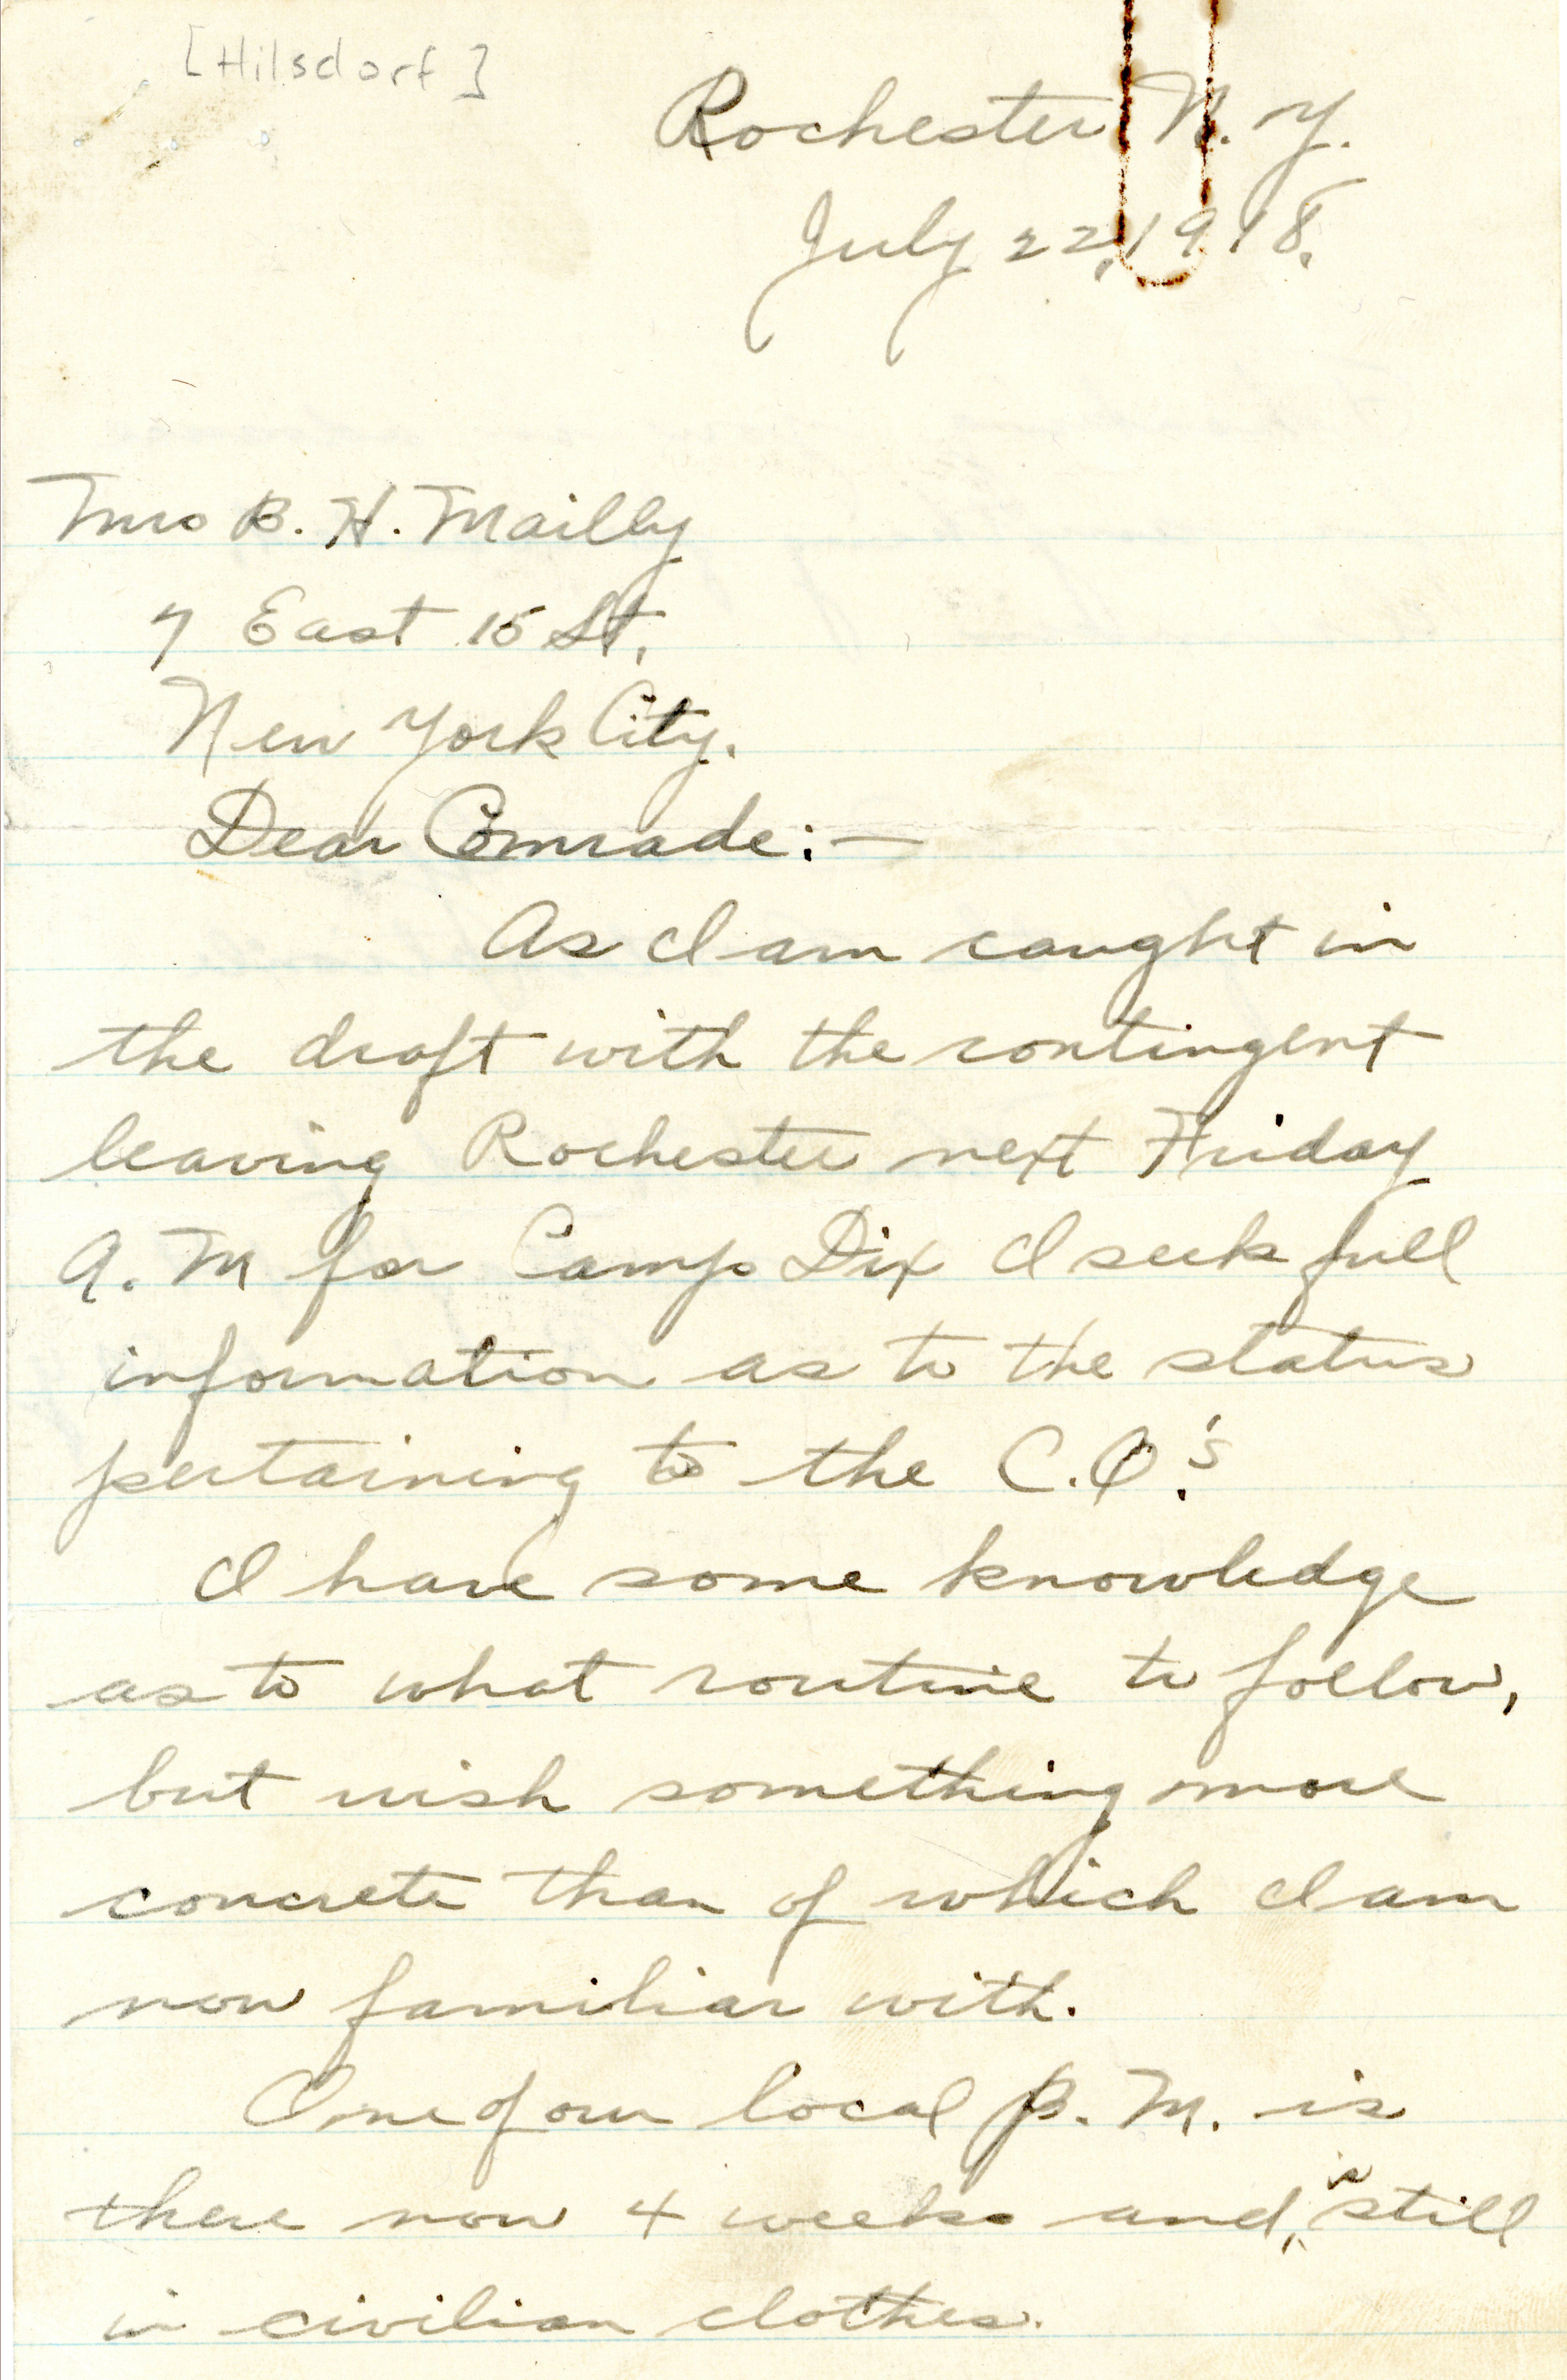 [Hilsdorf]
Rochester N. Y.
July 22, 1918.
Mrs B. H. Mailly
7 East 15 St,
New York City.
Dear Comrade:—
As I am caught in
the draft with the contingent
leaving Rochester next Friday
A. M for Camp Dix I seek full
information as to the status
pertaining to the C.O.'s
I have some knowledge
as to what routine to follow,
but wish something more
concrete than of which I am
now familiar with.
One of our local B. M. is
there now 4 weeks and is still
in civilian clothes.